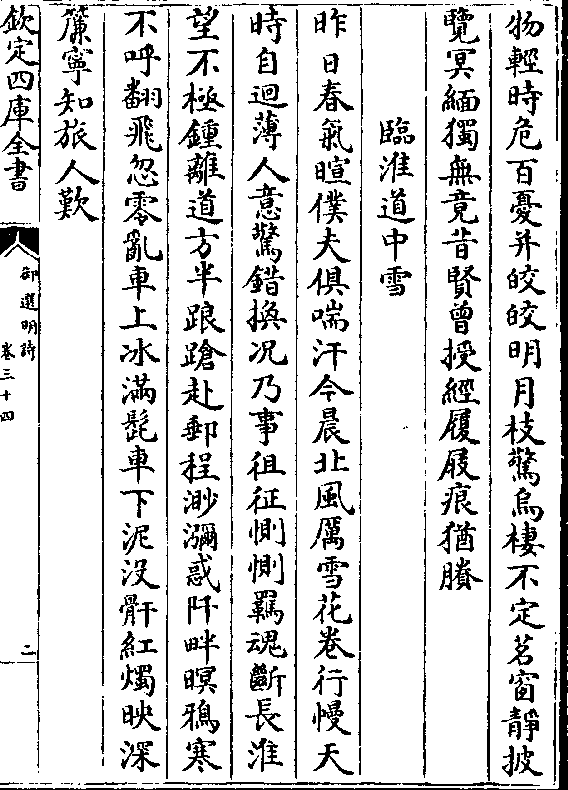 物輕時危百憂并皎皎明月枝驚烏棲不定茗窗靜披
覽冥緬獨無竟昔賢曾授經履屐痕猶賸
臨淮道中雪
昨日春氣暄僕夫俱喘汗今晨北風厲雪花卷行幔天
時自迴薄人意驚錯換况乃事徂征惻惻羈魂斷長淮
望不極鍾離道方半踉蹌赴郵程渺瀰惑阡畔暝鴉寒
不呼翻飛忽零亂車上冰滿髭車下泥没骭紅燭映深
簾寧知旅人歎
欽定四庫全書
御選明詩
卷三十四
二